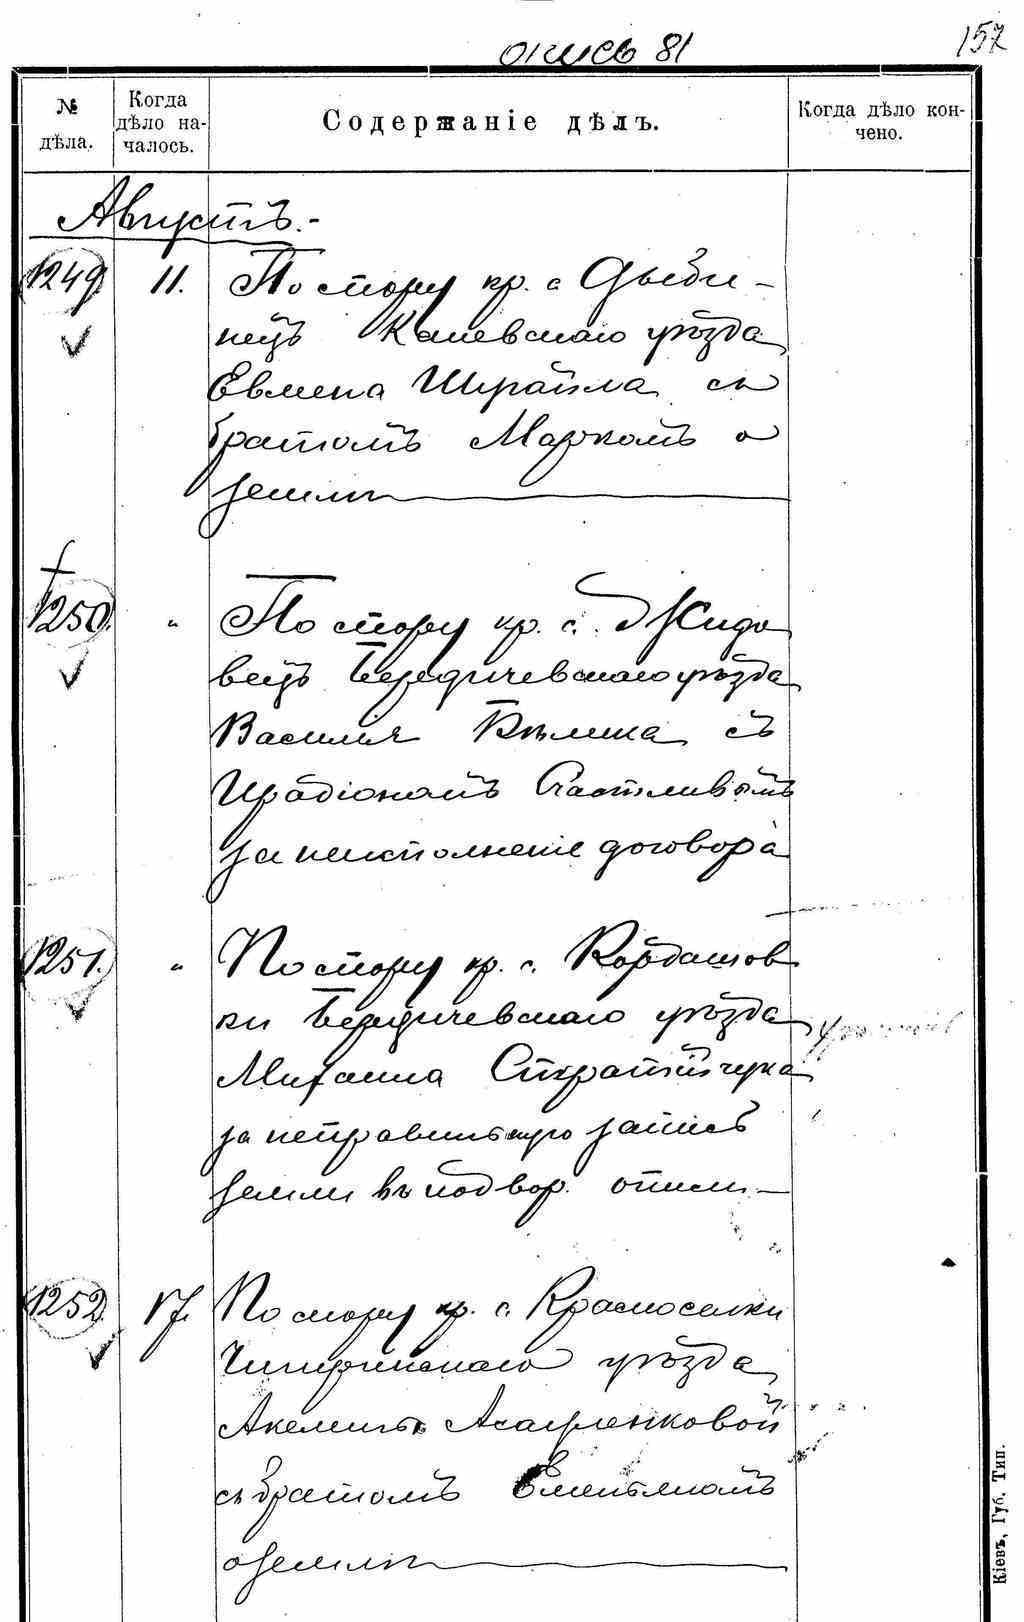 опись 81
157
№ дѣла.
Когда дѣло на-
чалось.
Содержаніе дѣлъ.
Когда дѣло кон-
чено.
Августъ.-
1249 11. По спору кр. с Дыби-
нецъ Каневскаго уѣзда
Евмена Шрайла съ
братомъ Маркомъ о
землѣ
1250. " По спору кр. с. Жидо
вецъ Бердичевскаго уѣзда
Василія Бѣлика съ
Иродіономъ Счастливымъ
за неисполненіе договора
1251. " По спору кр. с. Кордашов
ки Бердичевскаго уѣзда
Михаила Стратійчука
за неправильную запись
земли въ подвор. описи
1252 17. По спору кр. с. Красноселки
Чигиринскаго уѣзда
Акелины Агафенковой
съ братомъ Емельяномъ
о землѣ
Кіевъ, Губ. Тип.